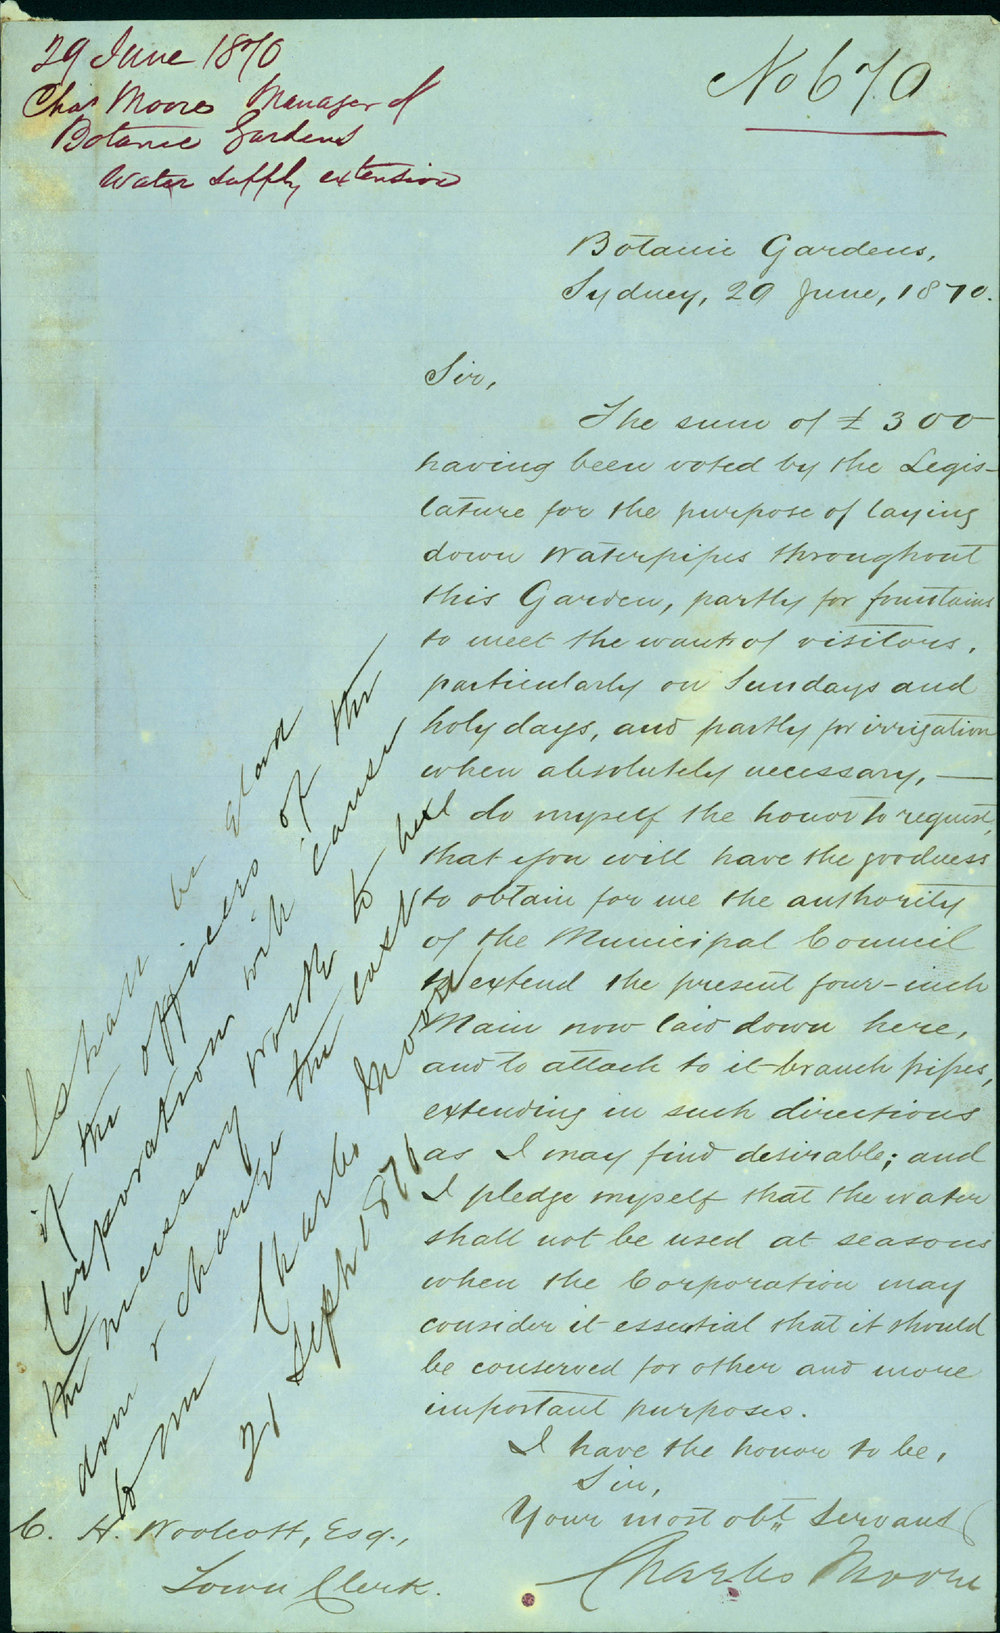 29 June 1870
Chas Moore Manager of
Botanic Gardens
Water supply extension
No 670
Botanic Gardens,
Sydney, 29 June, 1870.
Sir,
The sum of £300
having been voted by the Legis-
lature for the purpose of laying
down Waterpipes throughout
this Garden, partly for fountains
to meet the wants of visitors,
particularly on Sundays and
holydays, and partly for irrigation
when absolutely necessary, —
I do myself the honor to request,
that you will have the goodness
to obtain for me the authority
of the Municipal Council
to extend the present four-inch
Main now laid down here,
and to attach to it branch pipes,
extending in such directions
as I may find desirable; and
I pledge myself that the water
shall not be used at seasons
when the Corporation may
consider it essential that it should
be conserved for other and more
important purposes.
I have the honor to be,
Sir,
Your most obt. Servant
Charles Moore
C. H. Woolcott, Esq.,
Town Clerk.
I shall be glad
if the officers of the
Corporation will cause
the necessary work to be
done & charge the cost
to me
Charles Moore
21 Septr 1870